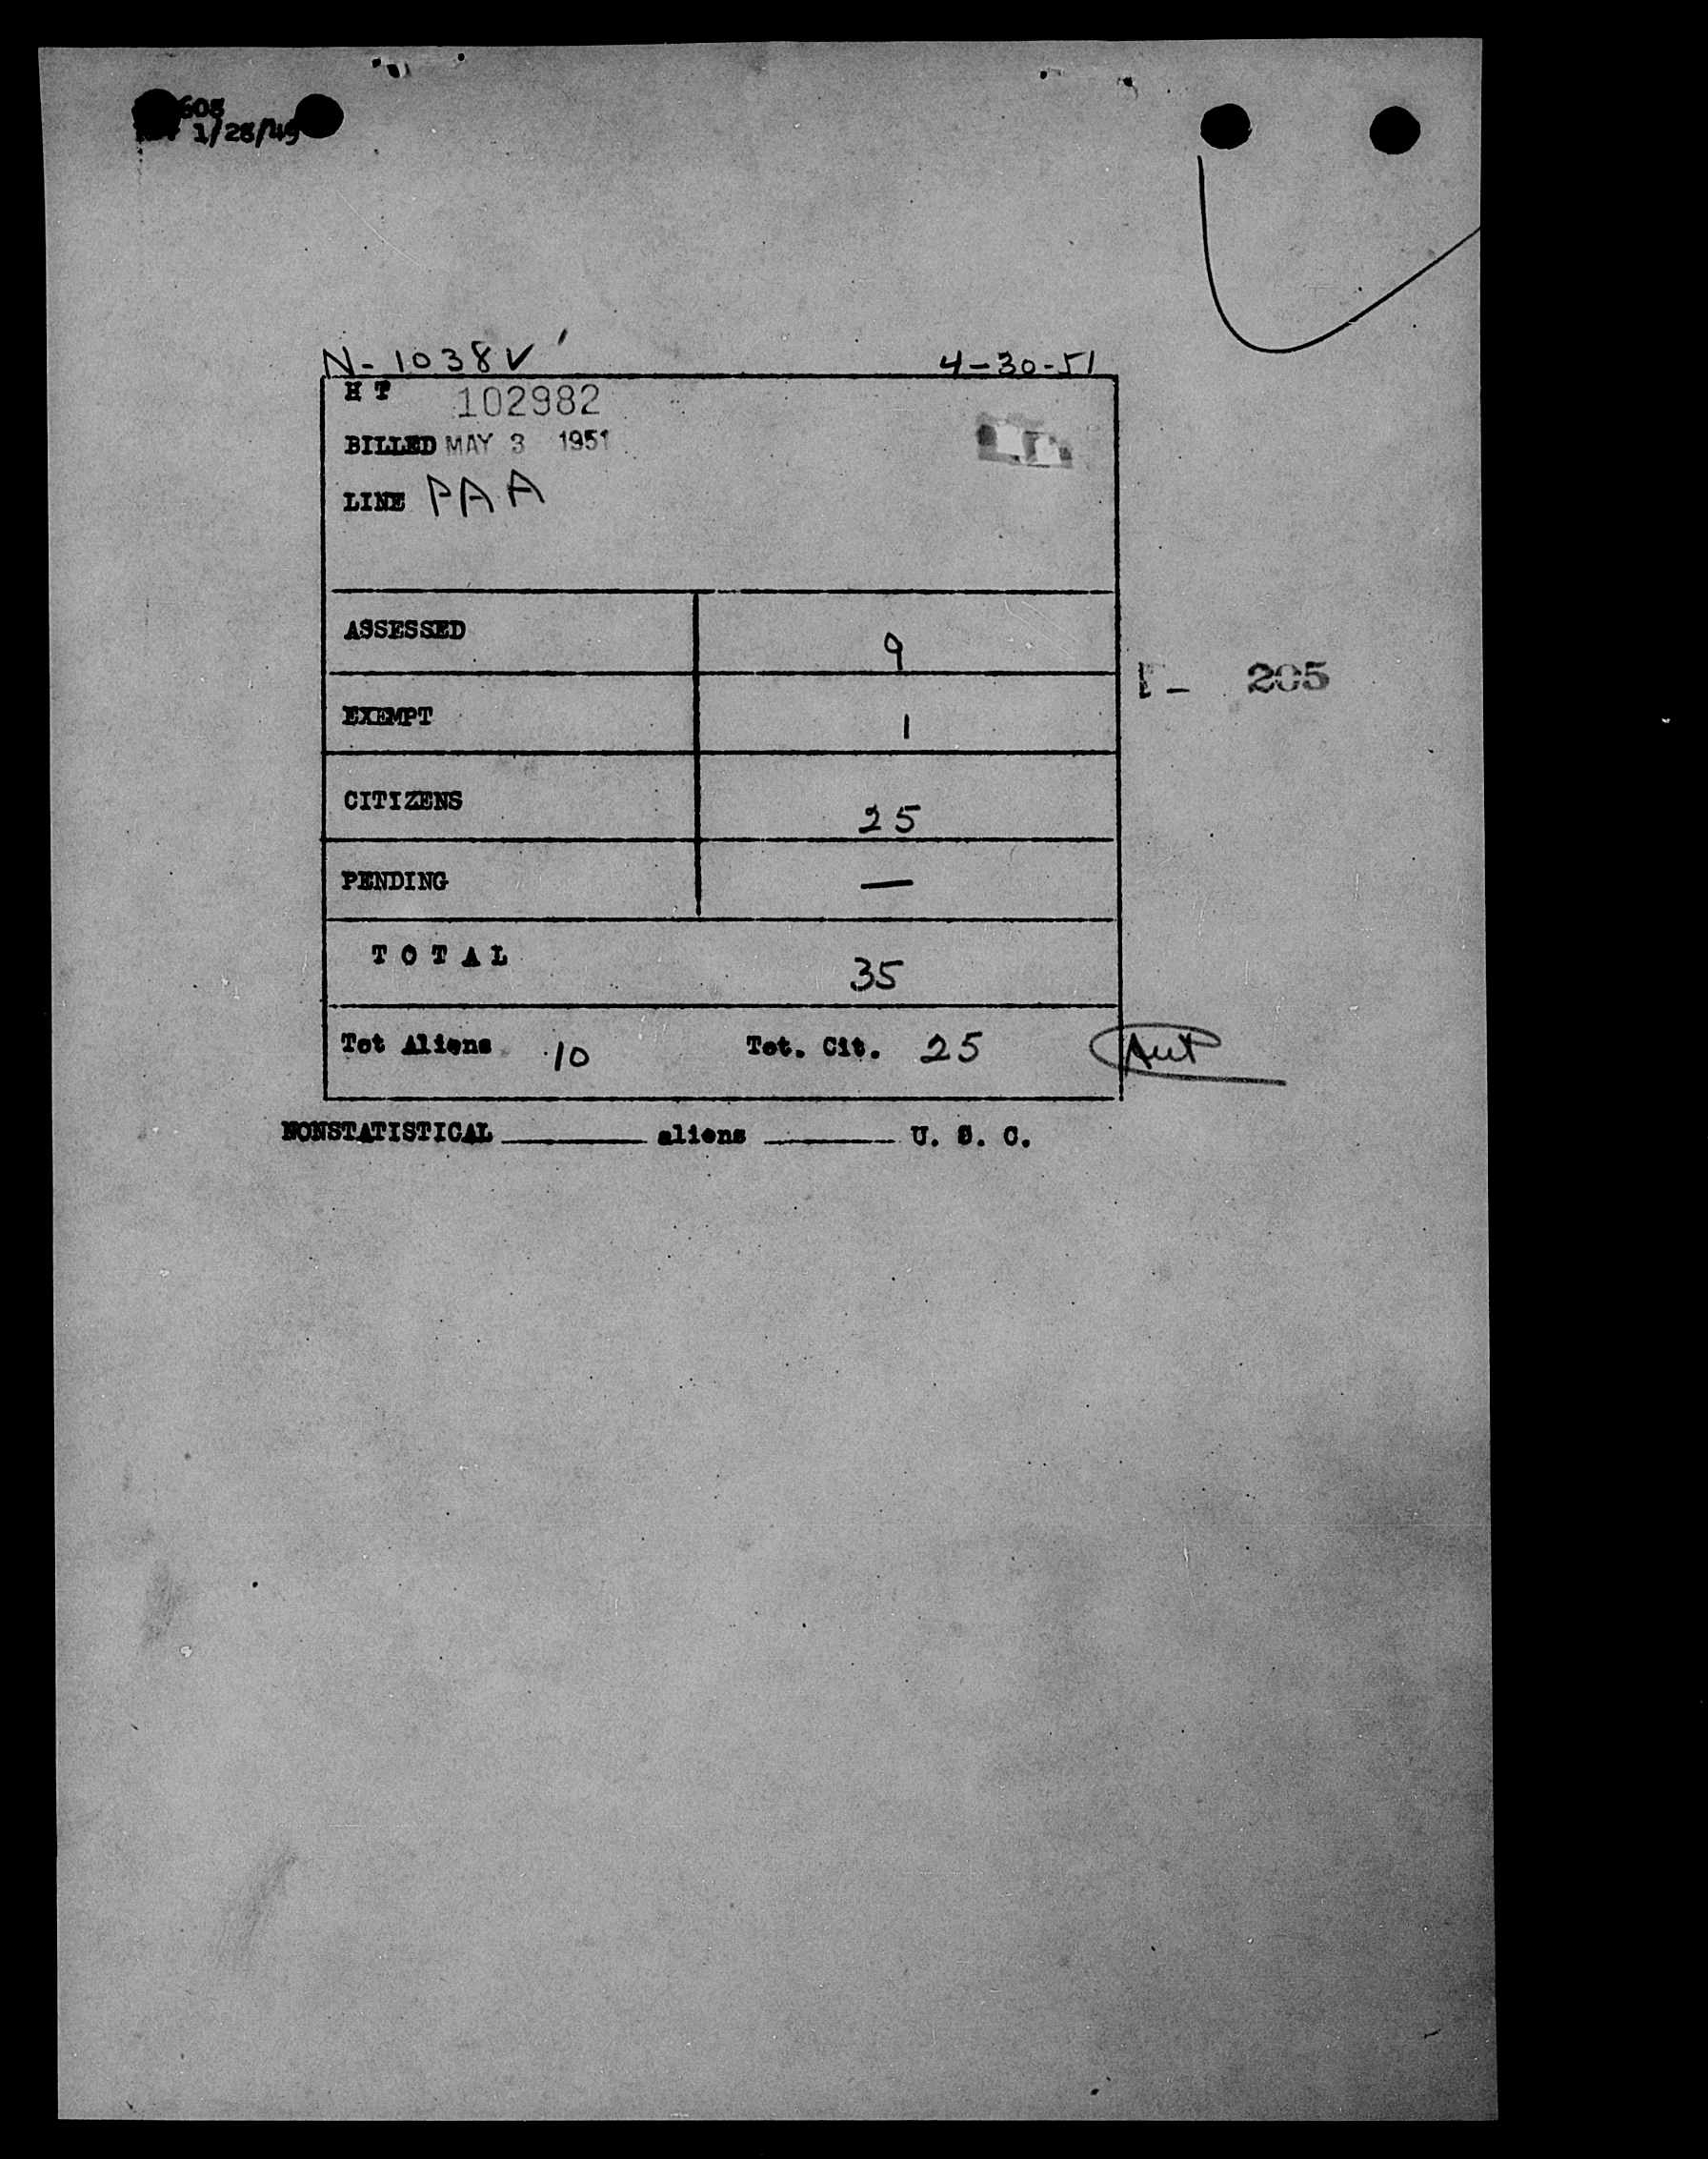 603
1/28/49
N-1038V 4-30-51
H T 102982
BILLED MAY 3 1951
LINE PAA
ASSESSED 9
EXEMPT 1
205
CITIZENS 25
PENDING —
TOTAL 35
Tot Aliens 10 Tot. Cit. 25
NONSTATISTICAL ______ aliens ______ U. S. C.